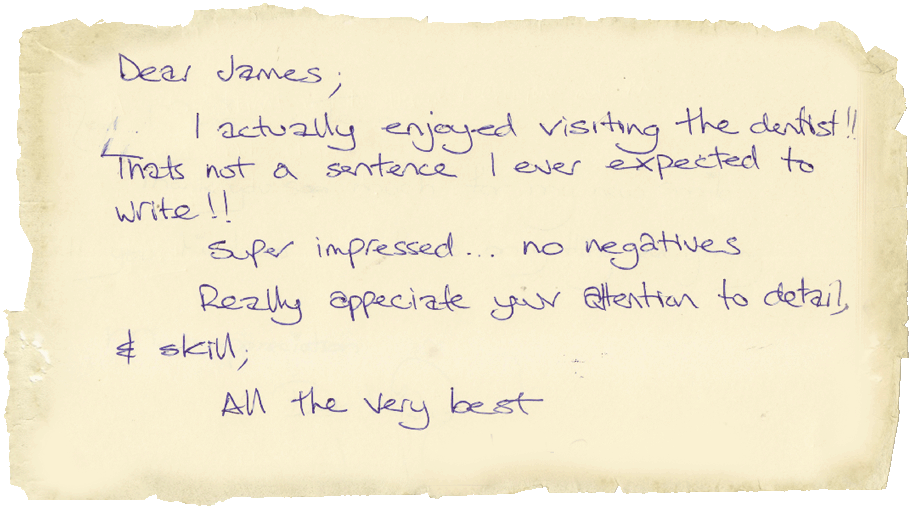 Dear James,
I actually enjoyed visiting the dentist!!
Thats not a sentence I ever expected to
write!!
Super impressed... no negatives
Really appeciate your attention to detail,
& skill,
All the very best